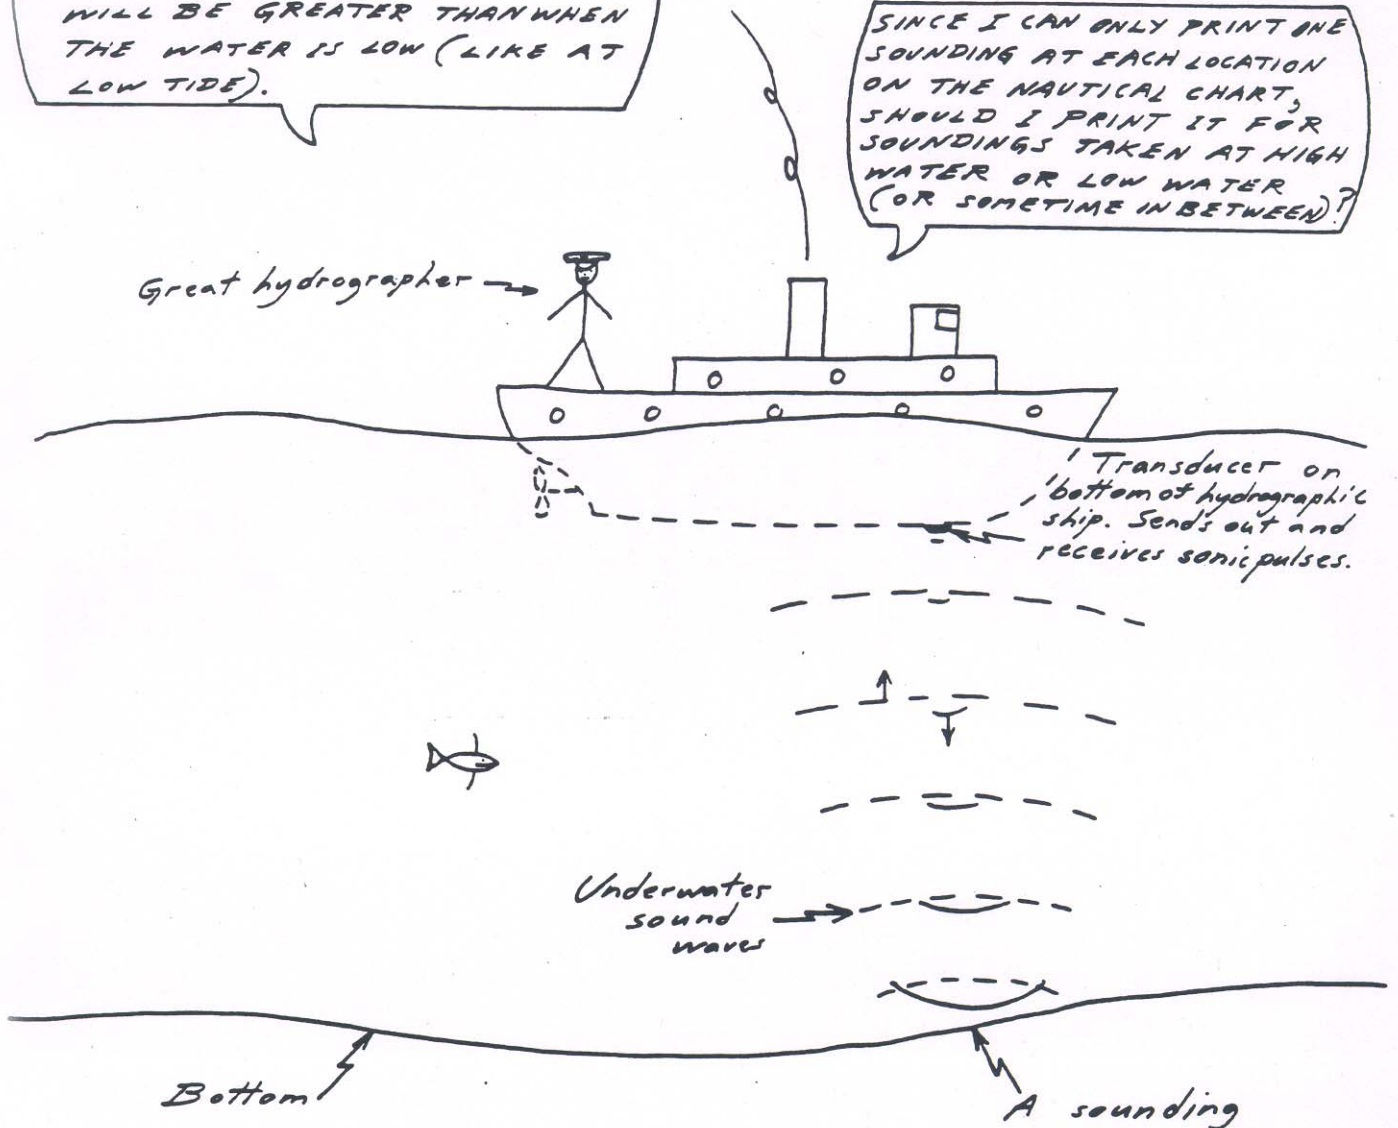 WILL BE GREATER THAN WHEN
THE WATER IS LOW (LIKE AT
LOW TIDE).
SINCE I CAN ONLY PRINT ONE
SOUNDING AT EACH LOCATION
ON THE NAUTICAL CHART,
SHOULD I PRINT IT FOR
SOUNDINGS TAKEN AT HIGH
WATER OR LOW WATER
(OR SOMETIME IN BETWEEN)?
Great hydrographer
Transducer on
bottom of hydrographic
ship. Sends out and
receives sonic pulses.
Underwater
sound
waves
Bottom
A sounding